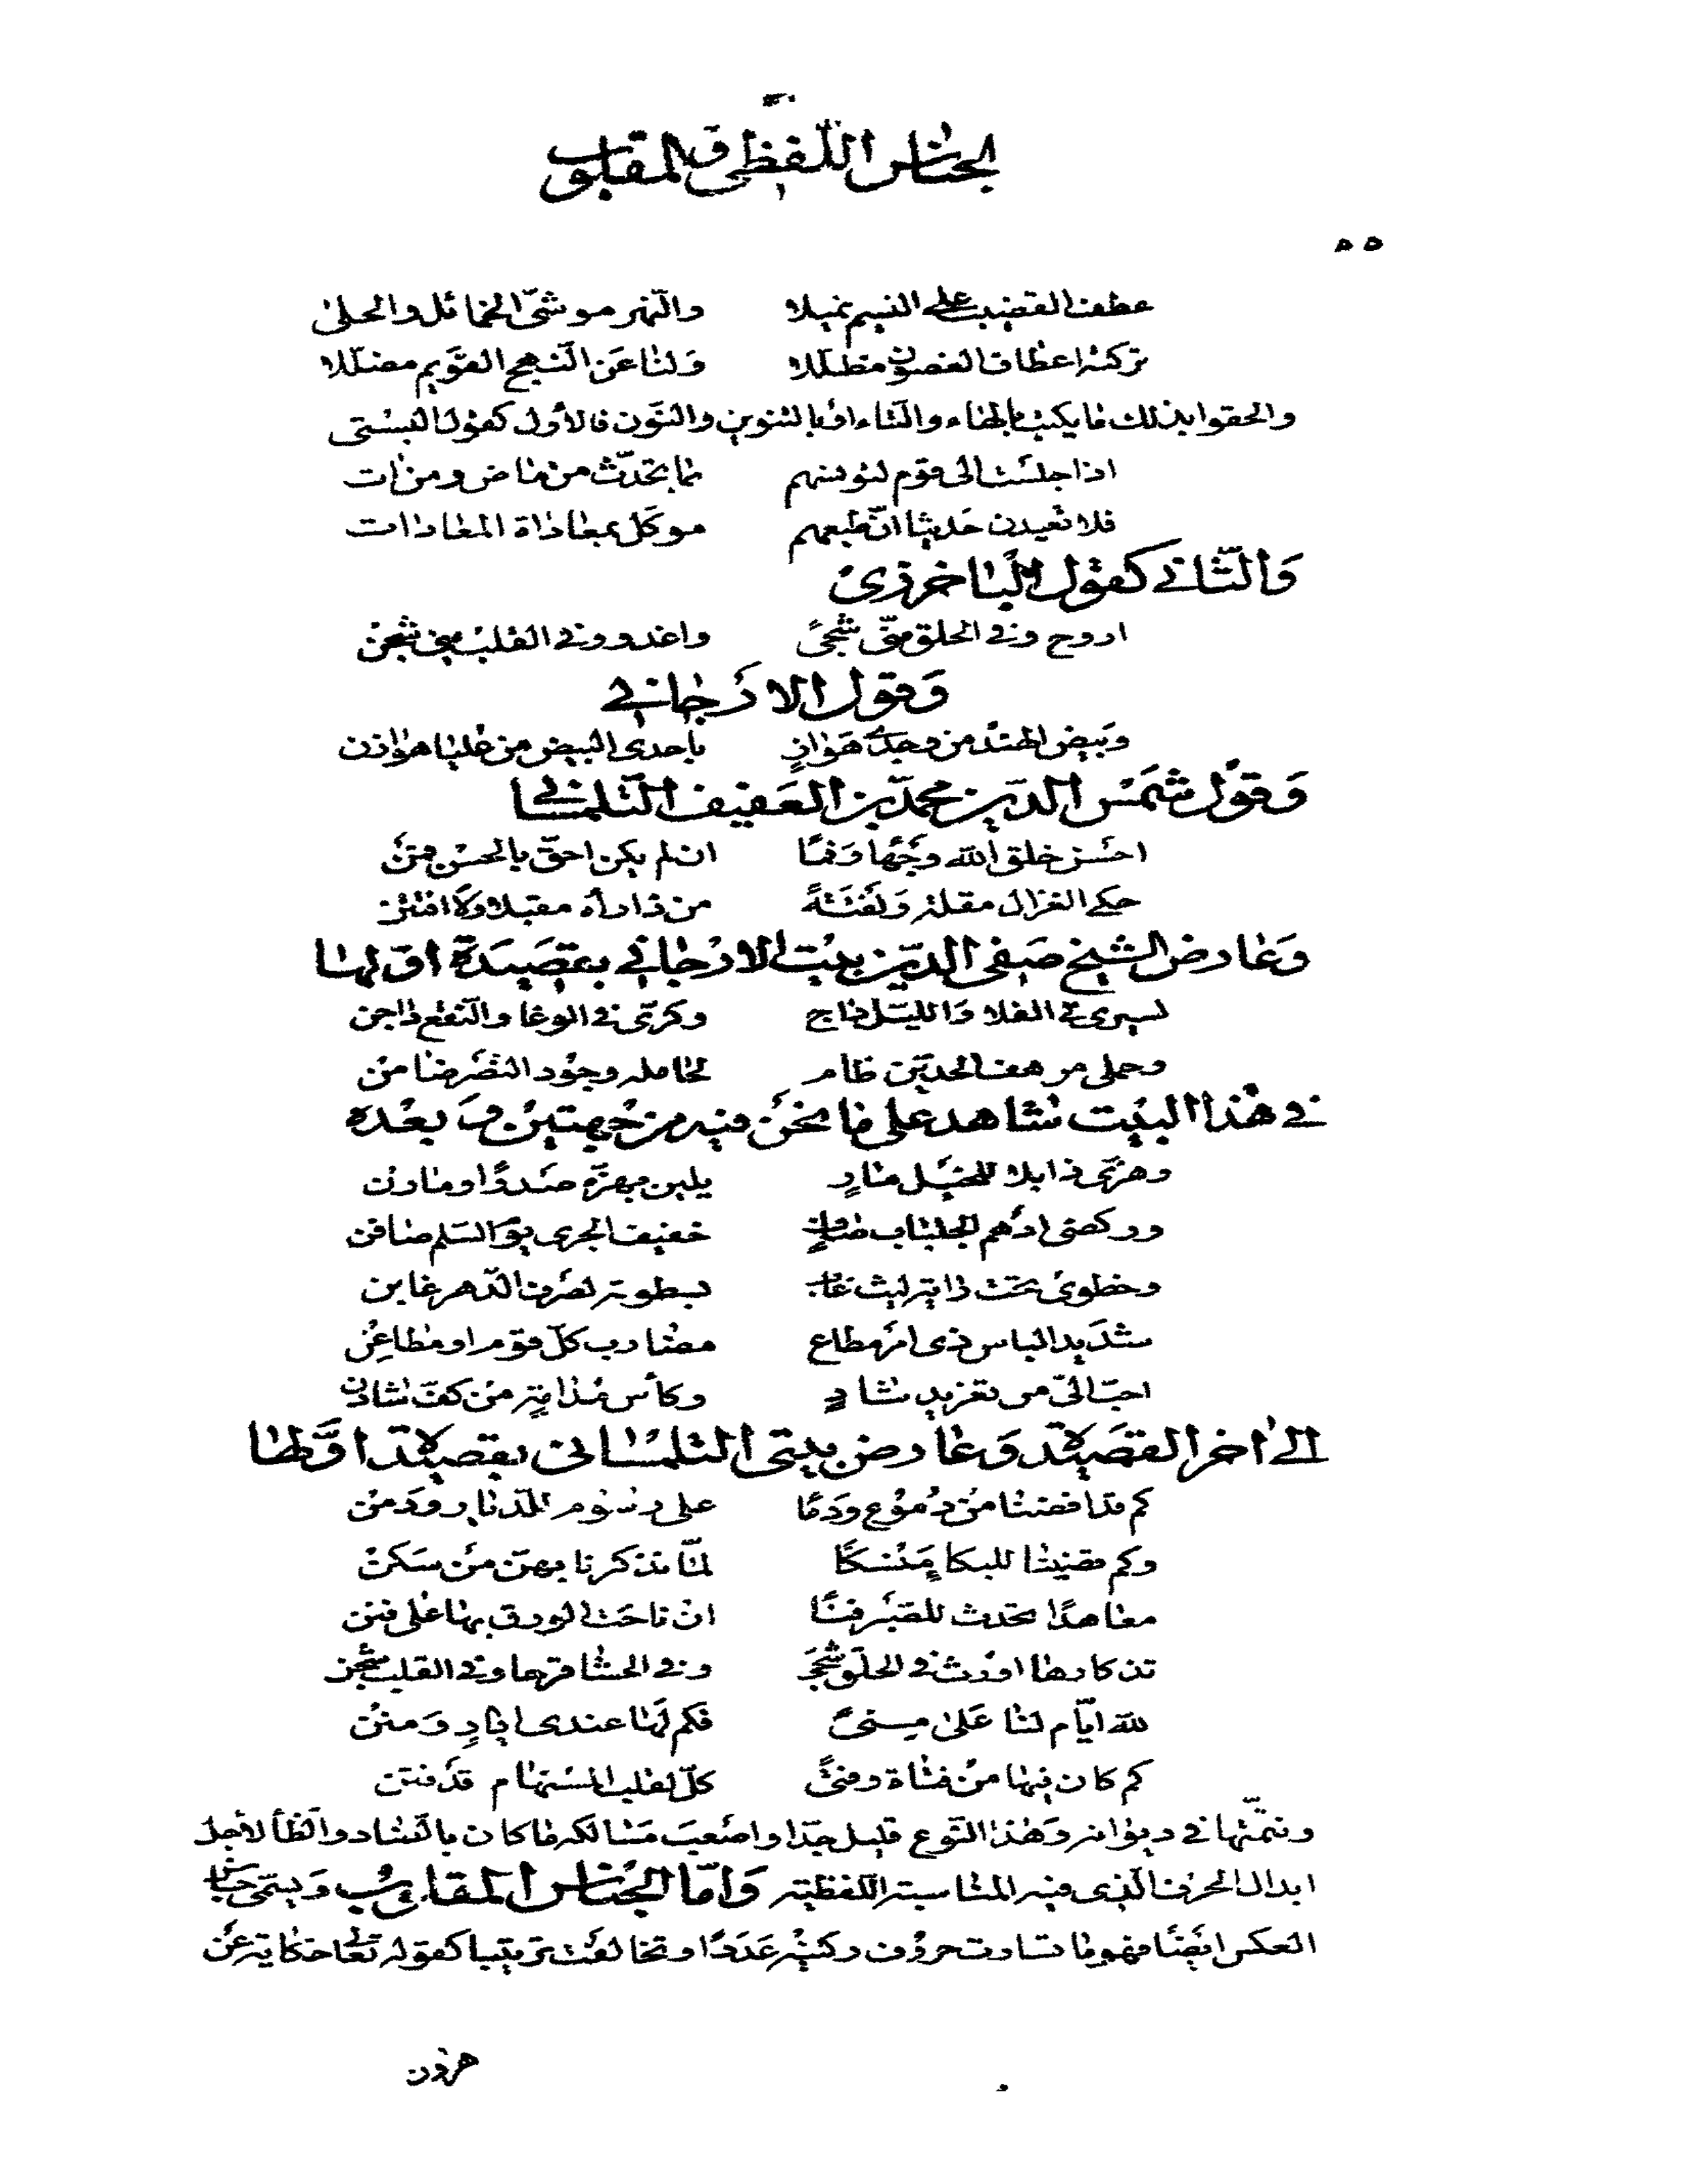 الجناس اللفظى والمقلوب
٥٥
عطف القضيب على النسيم تميلا والنهر موشىّ الخمائل والحلىٰ
تركته اعطاف الغصون مظللا وَلنا عَن النّهج القوَيم مضلّلا
والحقوا بذلك ما يكتب بالهاء والتاء او بالتنوين والنّون فالأول كقول البستى
اذا جلست الى قوم لتونسهم بما تحدّث من ماض ومن اٰت
فلا تعيدن حَديثا انّ طبعهم موكَل بمعاداة المعادات
وَالثّانى كقول الباخرزى
اروح وفى الحلق منّى شجىً واغدو وفى القلب منى شجنْ
وَقول الارّجانى
وَبيض الهند من وجدى هَوازٍ باحدى البيض من عليا هوازن
وَقول شمَس الدّين محمدّ بن العَفيف التّلمسانى
احسَن خلق الله وَجْهًا وَفمًا ان لم يكن احقّ بالحسن فمَنْ
حكى الغزال مقلة وَلَفتَةً من ذا رأه مقبلا وَلا افتتن
وَعارض الشيخ صَفى الدّين بيْت الارّجانى بقصَيدَة اوّلها
لسيرى فى الفلا وَالليّل داج وكرىّ فى الوغا والنّقع داجن
وحملى مرهف الحدّين ظام لحامله وجوُد النصْر ضامن
فى هٰذا البيْت شاهد على ما نحَن فيه من جهتين وَ بعْده
وهزىّ ذابلا للخيَل مارٍ يلين بهزّه صَدرًا ومارن
وركضى ادْهم الجلباب صافٍ خفيف الجرى يوَم السّلم صافن
وخطوى تحت راية ليث غاب بسطوته لصَرف الدّهر غابن
شدَيد الباس ذى امرْ مطاع مضارب كلّ قوم او مطاعِن
احبّ الىّ من تغريد شاد وكأس مُدامةٍ من كفّ شادن
الىٰ اٰخر القصَيدة وَعارض بيتى التلمسانى بقصيدة اوّلها
كم قد افضنا من دُموُع ودَمًا على رسُوم للدّيار ودَمنْ
وكم قضينا للبكاء مَنْسكًا لمّا تذكرنا بهنّ من سَكنْ
معاهدًا تحدث للصَبر فنًا ان ناحَت الورق بها على فنن
تذكارها اورْث فى الحلق شجىً وفى الحشا قرحا وفى القلب شجن
للّه ايّام لنا عَلىٰ منىً فكم لَها عندى ايادٍ وَمننْ
كم كان فيها من فتاة وفتىً كلّ لقلب المستهام قد فتن
وتتمّتها فى ديوانه وَهٰذا النّوع قليل جدّا واصْعبَ مَسالكه ما كان بالضّاد والظّأ لأجل
ابدال الحرف الّذى فيه المناسبة اللّفظية وَامّا الجناس المقلوُب وَيسمّى جناس
العكس ايْضًا فهو ما تساوت حروُف ركنيْه عَدَدًا وتخالفت ترتيبا كقوله تعٰالى حكاية عَن
هرٰون